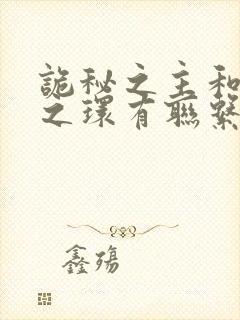 詭秘之主和
之環有聯繫
鑫殤